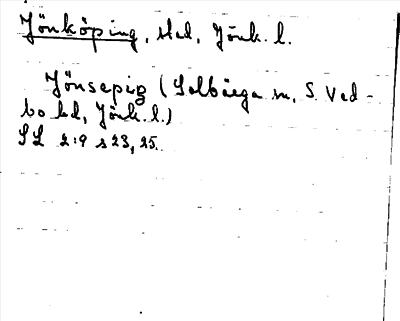 Jönköping, stad, Jönk. l.
Jönsepig (Solbärga sn, S. Ved-
bo hd, Jönk. l.)
SL 2:9 s 23, 25.